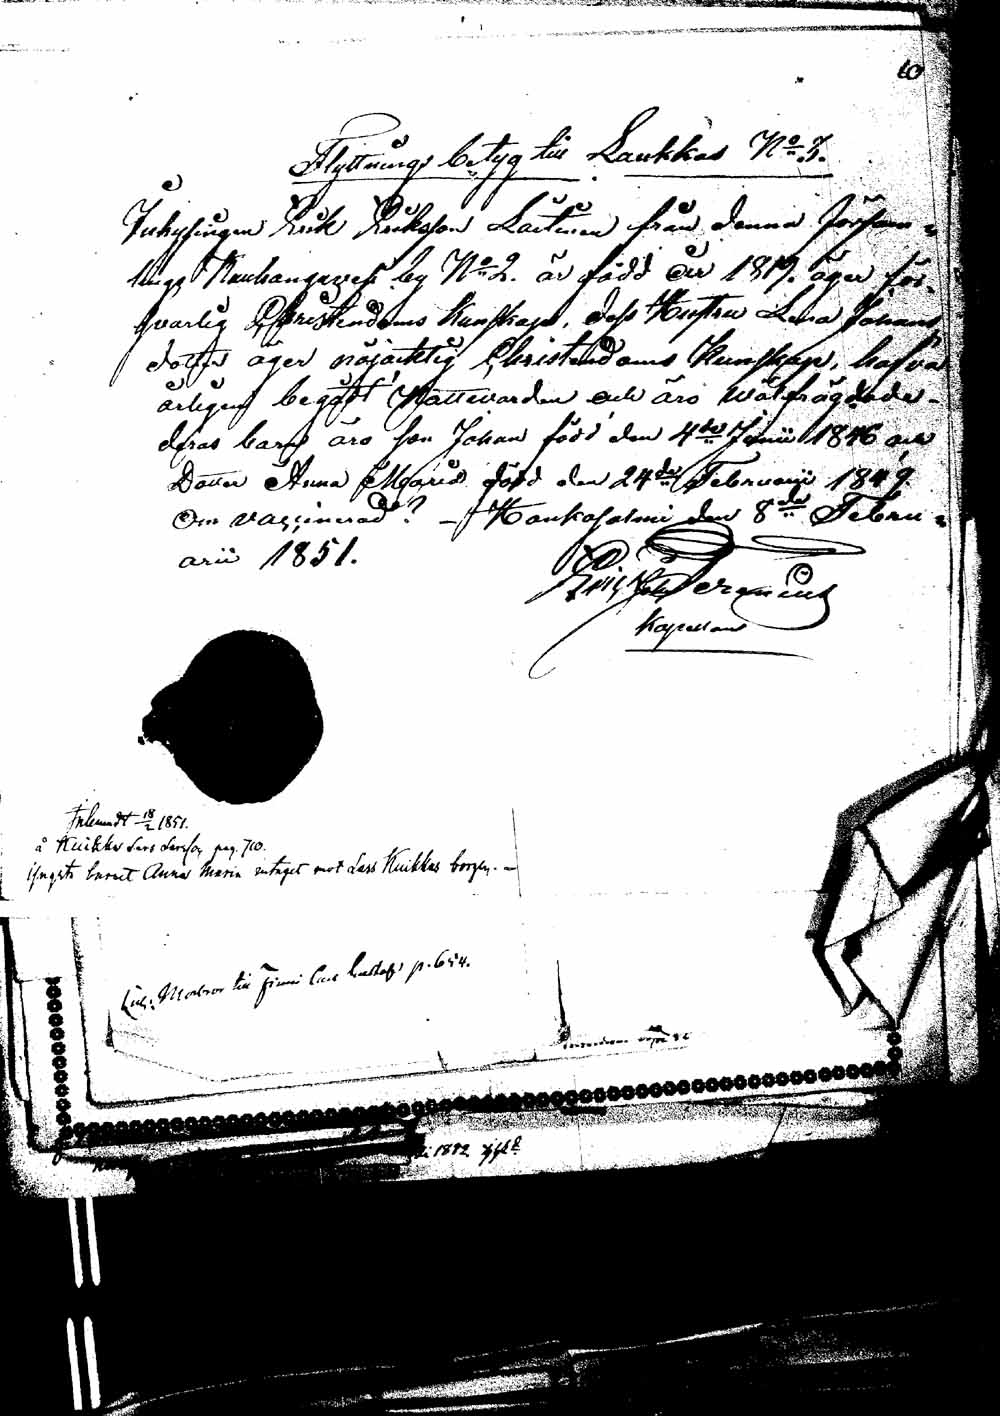 10
Flyttnings betyg till Laukkas No 3.
Inhysingen Erik Eriksson Laitinen från denna Försam=
lings Kauhangangas by No 2. är född år 1819. äger för-
svarlig Christendoms Kunskap, dess Hustru Lena Johans
dotter äger nöjacktig Christendoms Kunskap, hafva
årligen begått Nattvarden och äro wälfrägdade -
deras barn äro son Johan född den 4de Junii 1846 och
Dotter Anna Maria född den 24de Februarii 1849.
Om vaccinerad? - Hankasalmi den 8de Febru=
arii 1851.
Kapellan
Inkommit 18/2 1851.
å Kuikka Lars Larsson pag. 710.
yngsta barnet Anna Maria intaget mot Lars Kuikkas borgen. -
Morbror till Finni Carl Gustafs p. 654.
1892